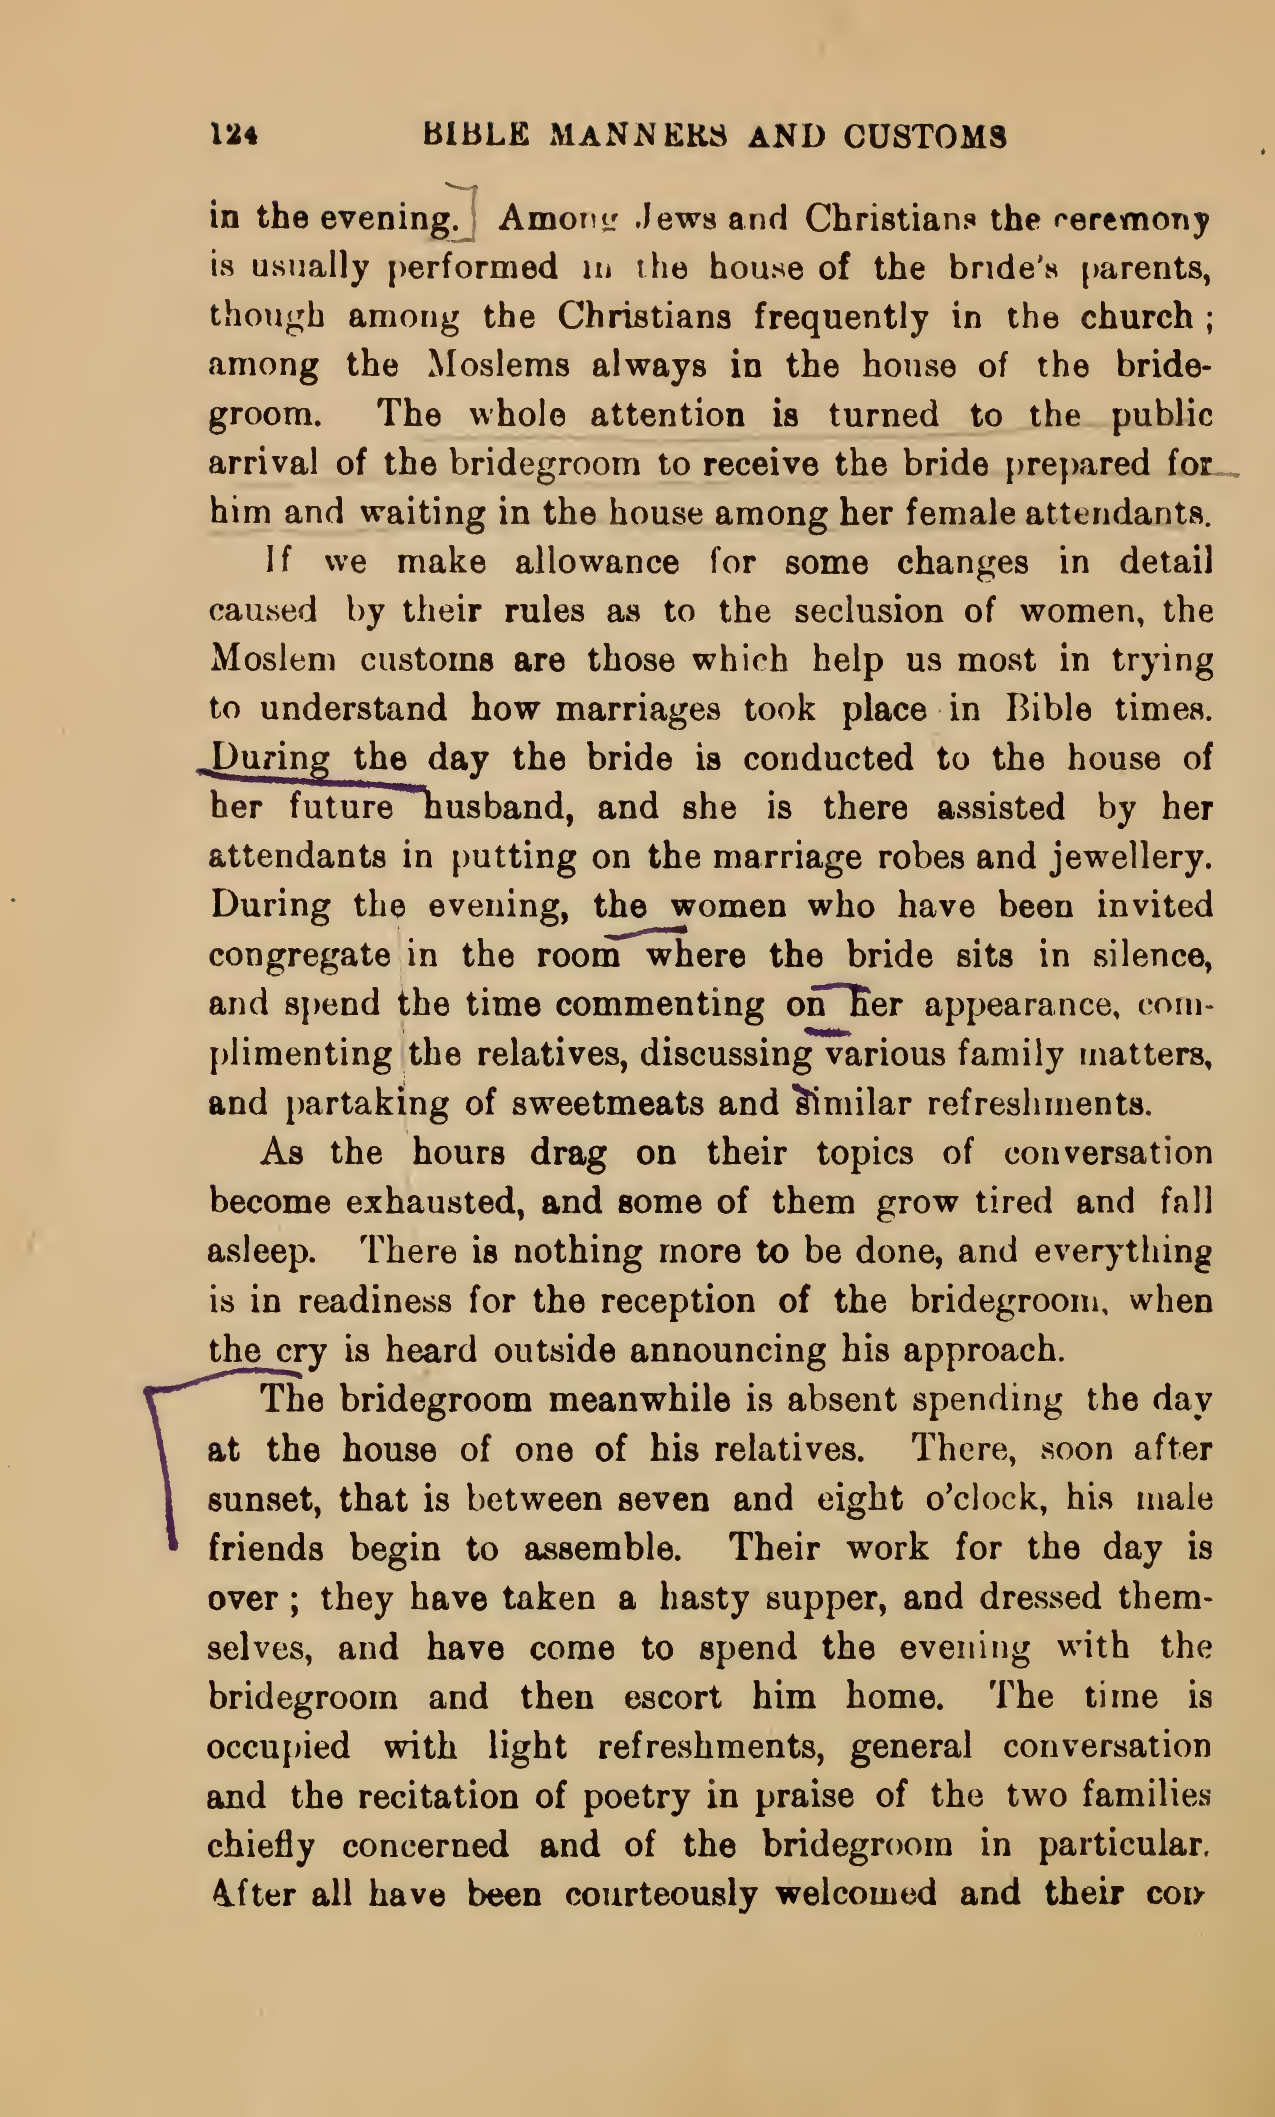 124 BIBLE MANNERS AND CUSTOMS
in the evening. Among Jews and Christians the ceremony
is usually performed in the house of the bride's parents,
though among the Christians frequently in the church ;
among the Moslems always in the house of the bride-
groom. The whole attention is turned to the public
arrival of the bridegroom to receive the bride prepared for
him and waiting in the house among her female attendants.
If we make allowance for some changes in detail
caused by their rules as to the seclusion of women, the
Moslem customs are those which help us most in trying
to understand how marriages took place in Bible times.
During the day the bride is conducted to the house of
her future husband, and she is there assisted by her
attendants in putting on the marriage robes and jewellery.
During the evening, the women who have been invited
congregate in the room where the bride sits in silence,
and spend the time commenting on her appearance, com-
plimenting the relatives, discussing various family matters,
and partaking of sweetmeats and similar refreshments.
As the hours drag on their topics of conversation
become exhausted, and some of them grow tired and fall
asleep. There is nothing more to be done, and everything
is in readiness for the reception of the bridegroom, when
the cry is heard outside announcing his approach.
The bridegroom meanwhile is absent spending the day
at the house of one of his relatives. There, soon after
sunset, that is between seven and eight o'clock, his male
friends begin to assemble. Their work for the day is
over ; they have taken a hasty supper, and dressed them-
selves, and have come to spend the evening with the
bridegroom and then escort him home. The time is
occupied with light refreshments, general conversation
and the recitation of poetry in praise of the two families
chiefly concerned and of the bridegroom in particular.
After all have been courteously welcomed and their con-